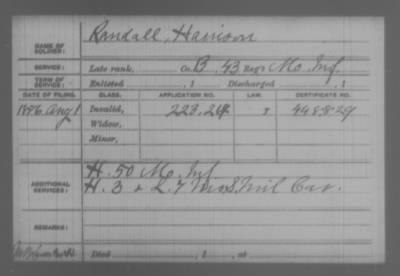 NAME OF SOLDIER: Randall, Harrison
SERVICE: Late rank, Co. B, 43 Reg't Mo. Inf.
TERM OF SERVICE: Enlisted , 1 Discharged , 1
DATE OF FILING. CLASS. APPLICATION NO. LAW. CERTIFICATE NO.
1876 Aug 1 Invalid, 223.24
Widow,
Minor,
ADDITIONAL SERVICES: H. 50 Mo. Inf
H. 3 & L. 7 Mo. S. Mil Cav.
REMARKS:
Died , 1 , at